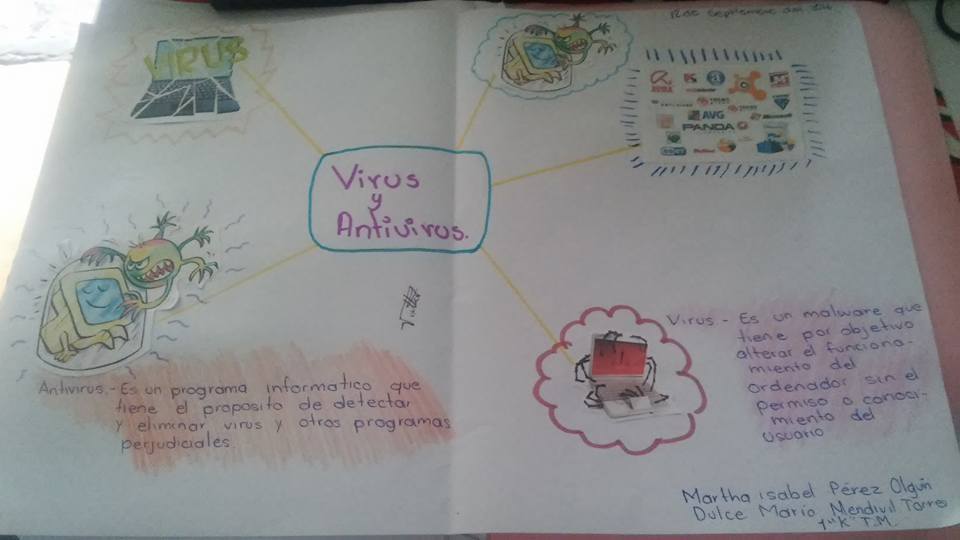 12 de Septiembre del
VIRUS
AVIRA
AVG
PANDA
Microsoft
eset
McAfee
Virus
y
Antivirus.
Virus - Es un malware que
tiene por objetivo
alterar el funciona-
miento del
ordenador sin el
permiso o conoci-
miento del
usuario
Antivirus.- Es un programa informatico que
tiene el proposito de detectar
y eliminar virus y otros programas
perjudiciales.
Martha isabel Pérez Olguin
Dulce María Mendivil Torres
1º "K" T.M.